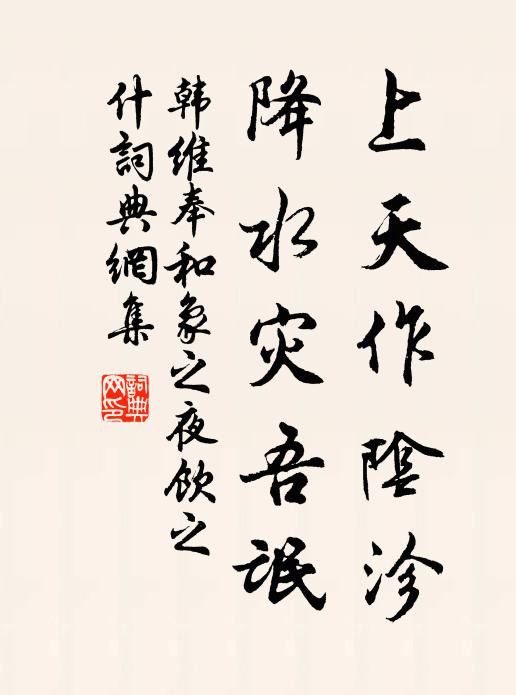 上天作陰沴
降水灾吾氓
韩維奉和象之夜飲之
什詞典網集
詞典
网印